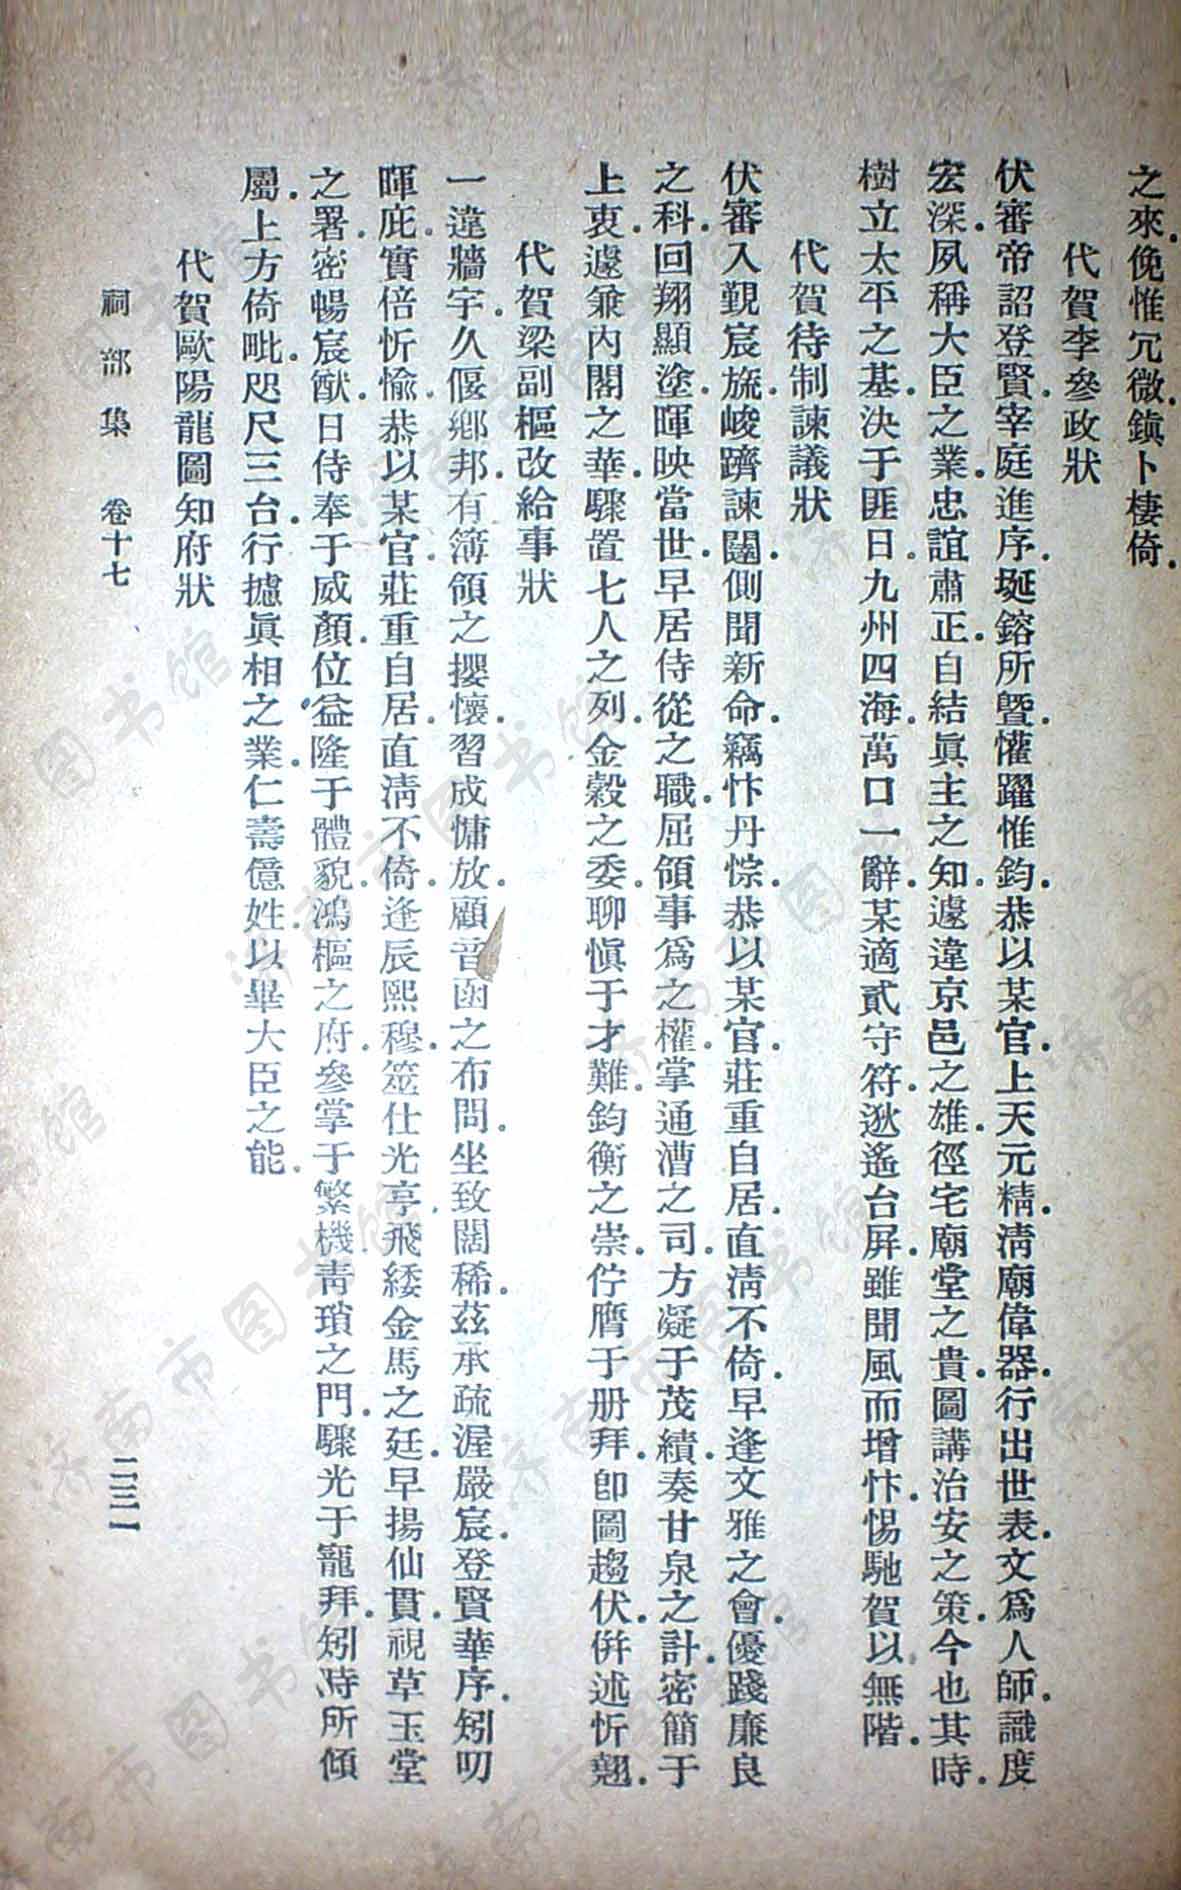 之來俛惟冗微鎭卜棲倚.
代賀李參政狀
伏審帝詔登賢.宰庭進序.埏鎔所曁.懽躍惟鈞.恭以某官.上天元精.淸廟偉器.行出世表.文爲人師.識度
宏深.夙稱大臣之業.忠誼肅正.自結眞主之知.遽違京邑之雄.徑宅廟堂之貴.圖講治安之策.今也其時.
樹立太平之基.決于匪日.九州四海.萬口一辭.某適貳守符.逖遙台屏.雖聞風而增忭.惕馳賀以無階.
代賀待制諫議狀
伏審入覲宸旒.峻躋諫闥.側聞新命.竊忭丹悰.恭以某官.莊重自居.直淸不倚.早逢文雅之會.優踐廉良
之科.回翔顯塗.暉映當世.早居侍從之職.屈領事爲之權.掌通漕之司.方凝于茂績.奏甘泉之計.密簡于
上衷.遽兼內閣之華.驟置七人之列.金穀之委.聊愼于才難.鈞衡之崇.佇膺于册拜.卽圖趨伏.併述忻翹.
代賀梁副樞改給事狀
一違牆宇.久偃鄕邦.有簿領之攖懷.習成慵放.顧音函之布問.坐致闊稀.茲承疏渥嚴宸.登賢華序.矧叨
暉庇.實倍忻愉.恭以某官.莊重自居.直淸不倚.逢辰熙穆.筮仕光亨.飛緌金馬之廷.早揚仙貫.視草玉堂
之署.密暢宸猷.日侍奉于威顏.位益隆于體貌.鴻樞之府.參掌于繁機.靑瑣之門.驟光于寵拜.矧時所傾
屬.上方倚毗.咫尺三台.行攄眞相之業.仁壽億姓.以畢大臣之能.
代賀歐陽龍圖知府狀
祠部集 卷十七 二三一